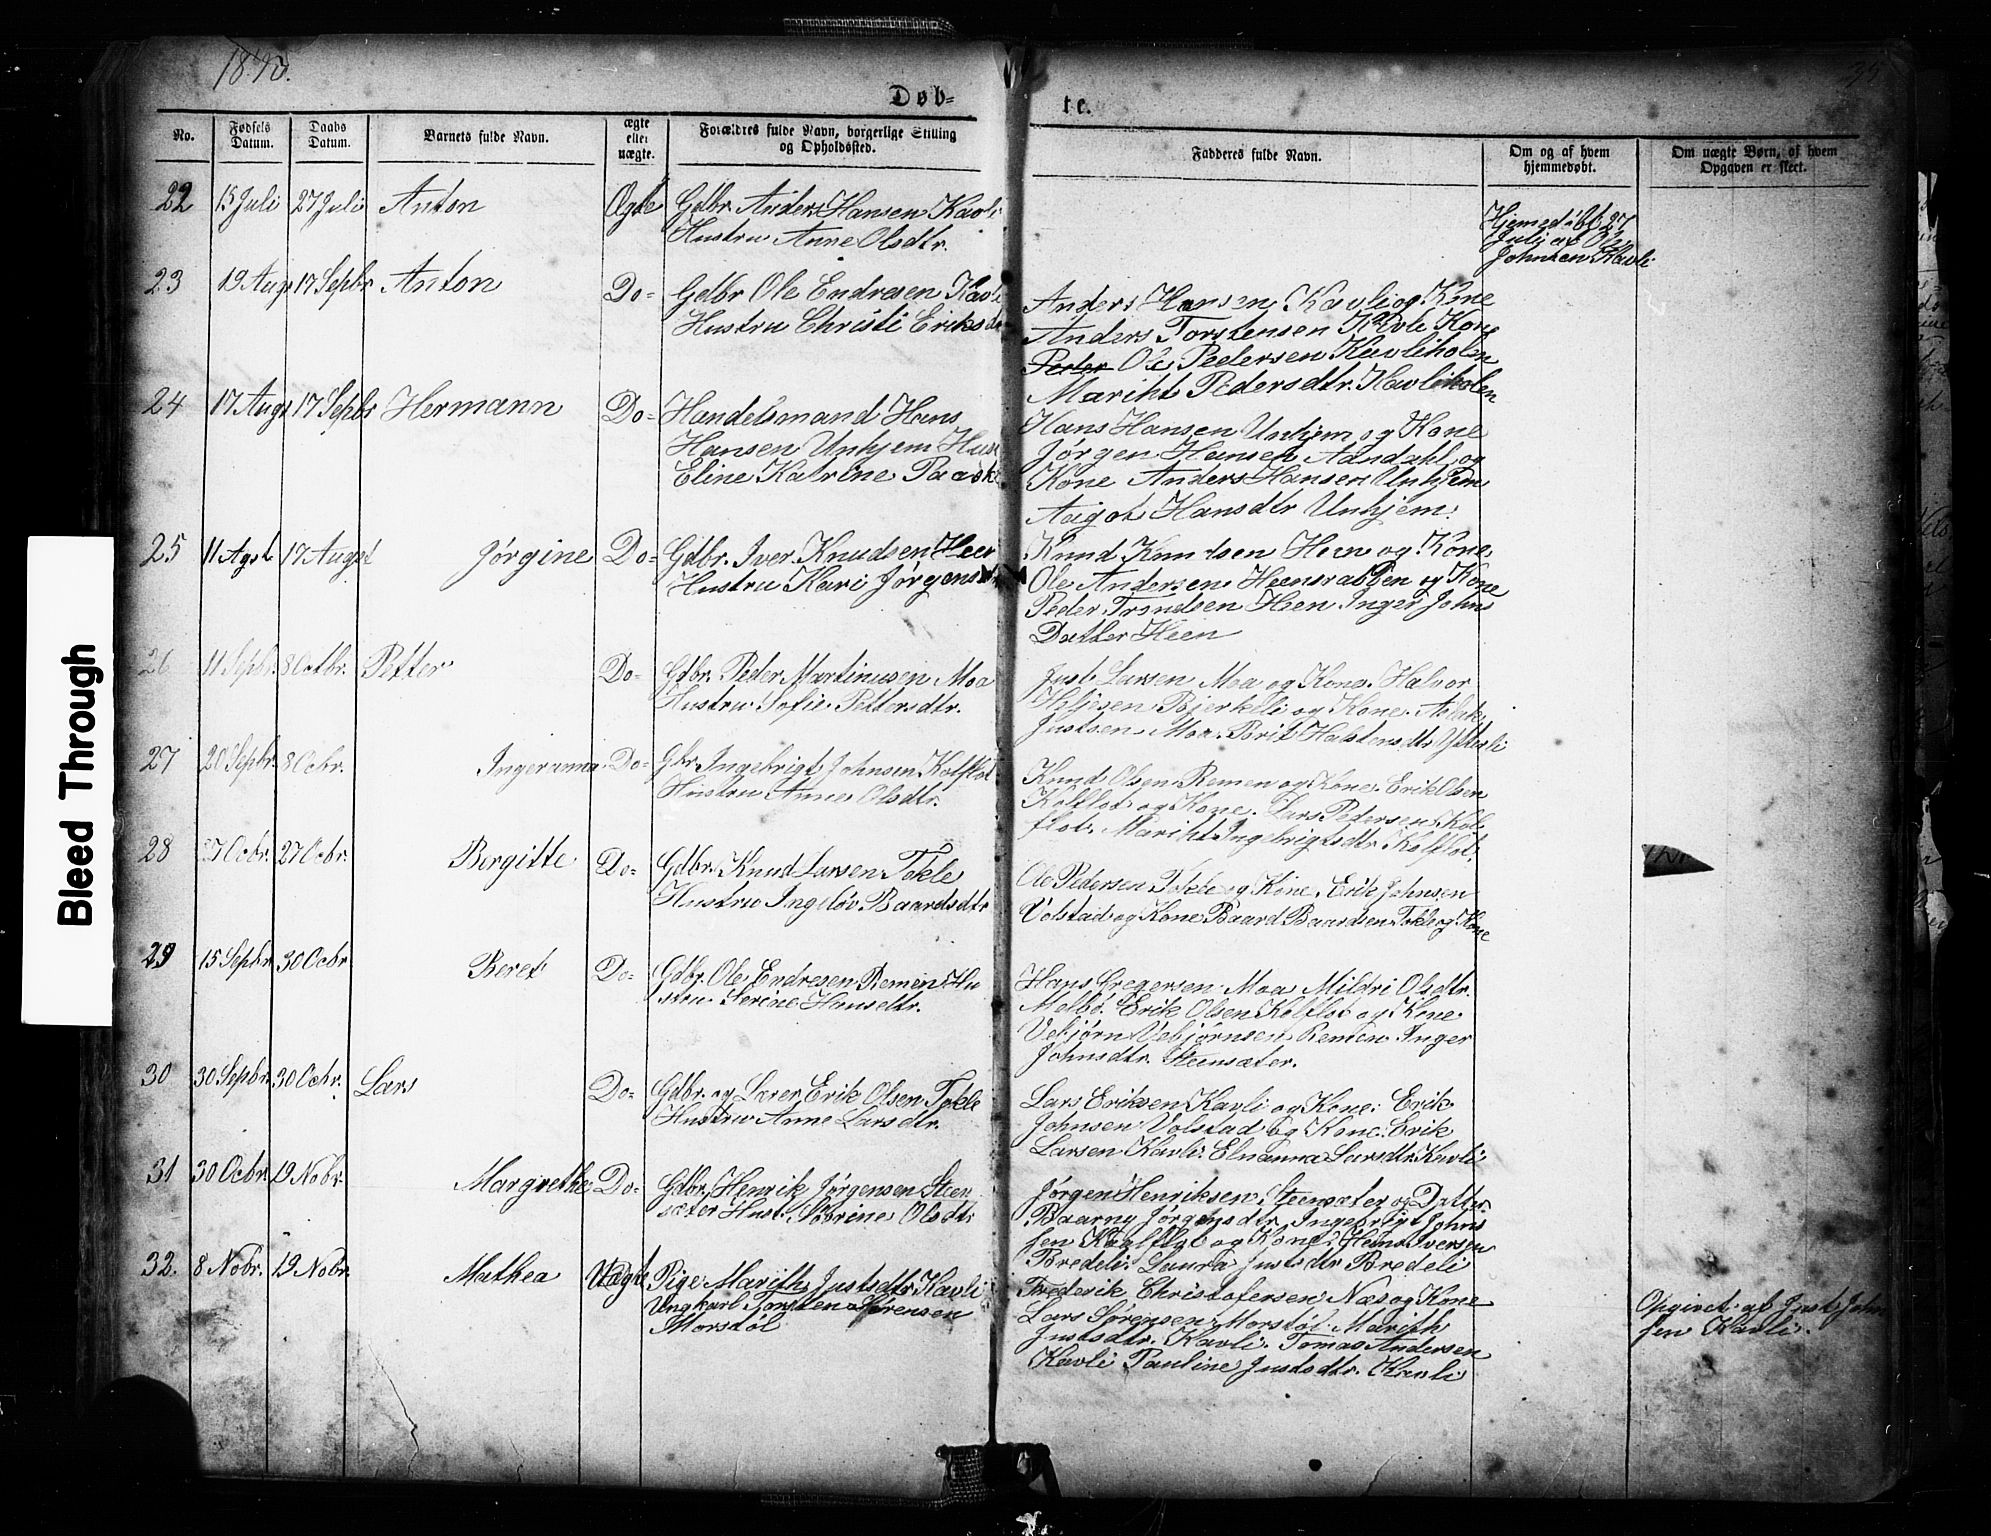 Døb-
te.
No.
Fødsels Datum.
Daabs Datum.
Barnets fulde Navn.
ægte eller uægte.
Forældres fulde Navn, borgerlige Stilling og Opholdssted.
Fadderes fulde Navn.
Om og af hvem hjemmedøbt.
Om uægte Børn, af hvem Opgaven er skeet.
22 15 Juli 27 Juli Anton Ægte Gdbr. Anders Hansen Kavli
Hustru Anne Olsdtr.
Hjemedøbt 27
Juli af Ole
Johnsen Kavli
23 19 Aug 17 Sepbr Anton Do= Gdbr Ole Endresen Kavli
Hustru Christi Eriksdtr
Anders Hansen Kavli og Kone
Anders Torstensen Kone
Peder Ole Pedersen Kavliholen
Mariht Pedersdtr. Kavliholen
24 17 Augs 17 Sepbr Hermann Do= Handelsmand Hans
Hansen Unhjem Hust
Eline Katrine Paaske
Hans Hansen Unhjem og Kone
Jørgen Hansen Aandahl og
Kone Anders Hansen Unhjem
Aagot Hansdtr Unhjem.
25 11 Agst 17 Augst Jørgine Do= Gdbr. Iver Knudsen Heen
Hustru Kari Jørgensdtr
Knud Knudsen Heen og Kone
Ole Andersen og Kone
Peder Trondsen Heen Inger Johns
Datter Heen
26 11 Sepbr. 8 Octbr. Petter Do= Gdbr. Peder Martinusen Moa
Hustru Sofie Pettersdtr.
Just Larsen Moa og Kone. Halvor
Bjerkeli og Kone.
Justsen Moa. Brit
27 20 Sepbr. 8 Ocbr. Ingeranna Do= Gbr. Ingebrigt Johnsen Kolflot
Hustru Anne Olsdtr.
Knud Olsen Remen og Kone. Erik Olsen
Kolflot og Kone. Lars Pedersen Kol
flot. Mariht Ingebrigtsdtr Kolflot.
28 Ocbr. 27 Ocbr. Bergitte Do= Gdbr. Knud Larsen Tokle
Hustru Ingeløv Baardsdtr
Ole Pedersen Tokle og Kone. Erik Johnsen
Volstad og Kone Baard Baardsen Tokle og Kone
29 15 Sepbr. 30 Ocbr Beret Do= Gdbr. Ole Endresen Remen Hu
stru Serine Hansdtr.
Hans Gregersen Moa Mildri Olsdtr.
Melbø. Erik Olsen Kolflot og Kone
Vebjørn Vebjørnsen Remen Inger
Johnsdtr. Steensæter.
30 30 Sepbr. 30 Ocbr. Lars Do= Gdbr. og Lærer Erik Olsen Tokle
Hustru Anne Larsdtr.
Lars Eriksen Kavli og Kone. Erik
Johnsen Volstad og Kone. Erik
Larsen Kavli. Elnanna Larsdtr. Kavli
31 30 Ocbr. 19 Nobr. Margrethe Do= Gdbr. Henrik Jørgensen Steen
sæter Hust. Olsdtr
Jørgen Henriksen Steensæter og Datter
Baarny Jørgensdtr. Ingebrigt Johns
sen og Kone. Hans Iversen
Bredeli. Laura Justsdtr Bredeli
32. 8 Nobr. 19 Nobr. Mathea Uægte Pige Marith Justsdtr Kavli
Ungkarl Torsten Sørensen
Morstøl
Frederik Christofersen Næs og Kone
Lars Sørensen Morstøl Marith
Justsdtr. Kavli. Tomas Andersen
Kavli Pauline Justsdtr. Kavli
Opgivet af Just John
sen Kavli.
Bleed Through